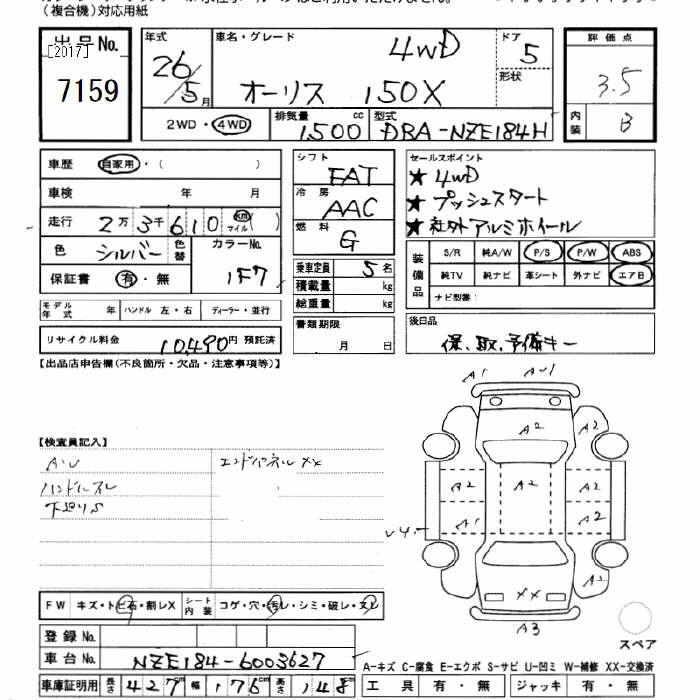 （複合機）対応用紙
出品No.
[2017]
7159
年式
26/5月
車名・グレード
4WD
オーリス 150X
ドア
5
形状
評価点
3.5
内装
B
2WD・4WD
排気量
1500
cc
型式
DBA-NZE184H
車歴
自家用・（ ）
車検
年 月
走行
2万3千610
km
マイル
( )
色
シルバー
色替
カラーNo.
1F7
保証書
有・無
シフト
FAT
冷房
AAC
燃料
G
乗車定員
5名
積載量
kg
総重量
kg
書類期限
月 日
セールスポイント
★ 4WD
★ プッシュスタート
★ 社外アルミホイール
装備品
S/R 純A/W P/S P/W ABS
純TV 純ナビ 革シート 外ナビ エアB
ナビ型番：
モデル年式
年
ハンドル 左・右
ディーラー・並行
リサイクル料金
10,490円 預託済
後日品
保、取、予備キー
【出品店申告欄(不良箇所・欠品・注意事項等)】
【検査員記入】
A・U
エンドパネルXX
ハンドルスレ
下廻りS
A1
A2
A2
A2
A2
A1
A2
XX
A3
FW
キズ・トビ石・割レX
シート内装
コゲ・穴・汚レ・シミ・破レ・スレ
登録No.
車台No.
NZE184-6003627
スペア
A-キズ C-腐食 E-エクボ S-サビ U-凹ミ W-補修 XX-交換済
車庫証明用
長さ
427
cm
幅
176
cm
高さ
148
cm
工具
有・無
ジャッキ
有・無